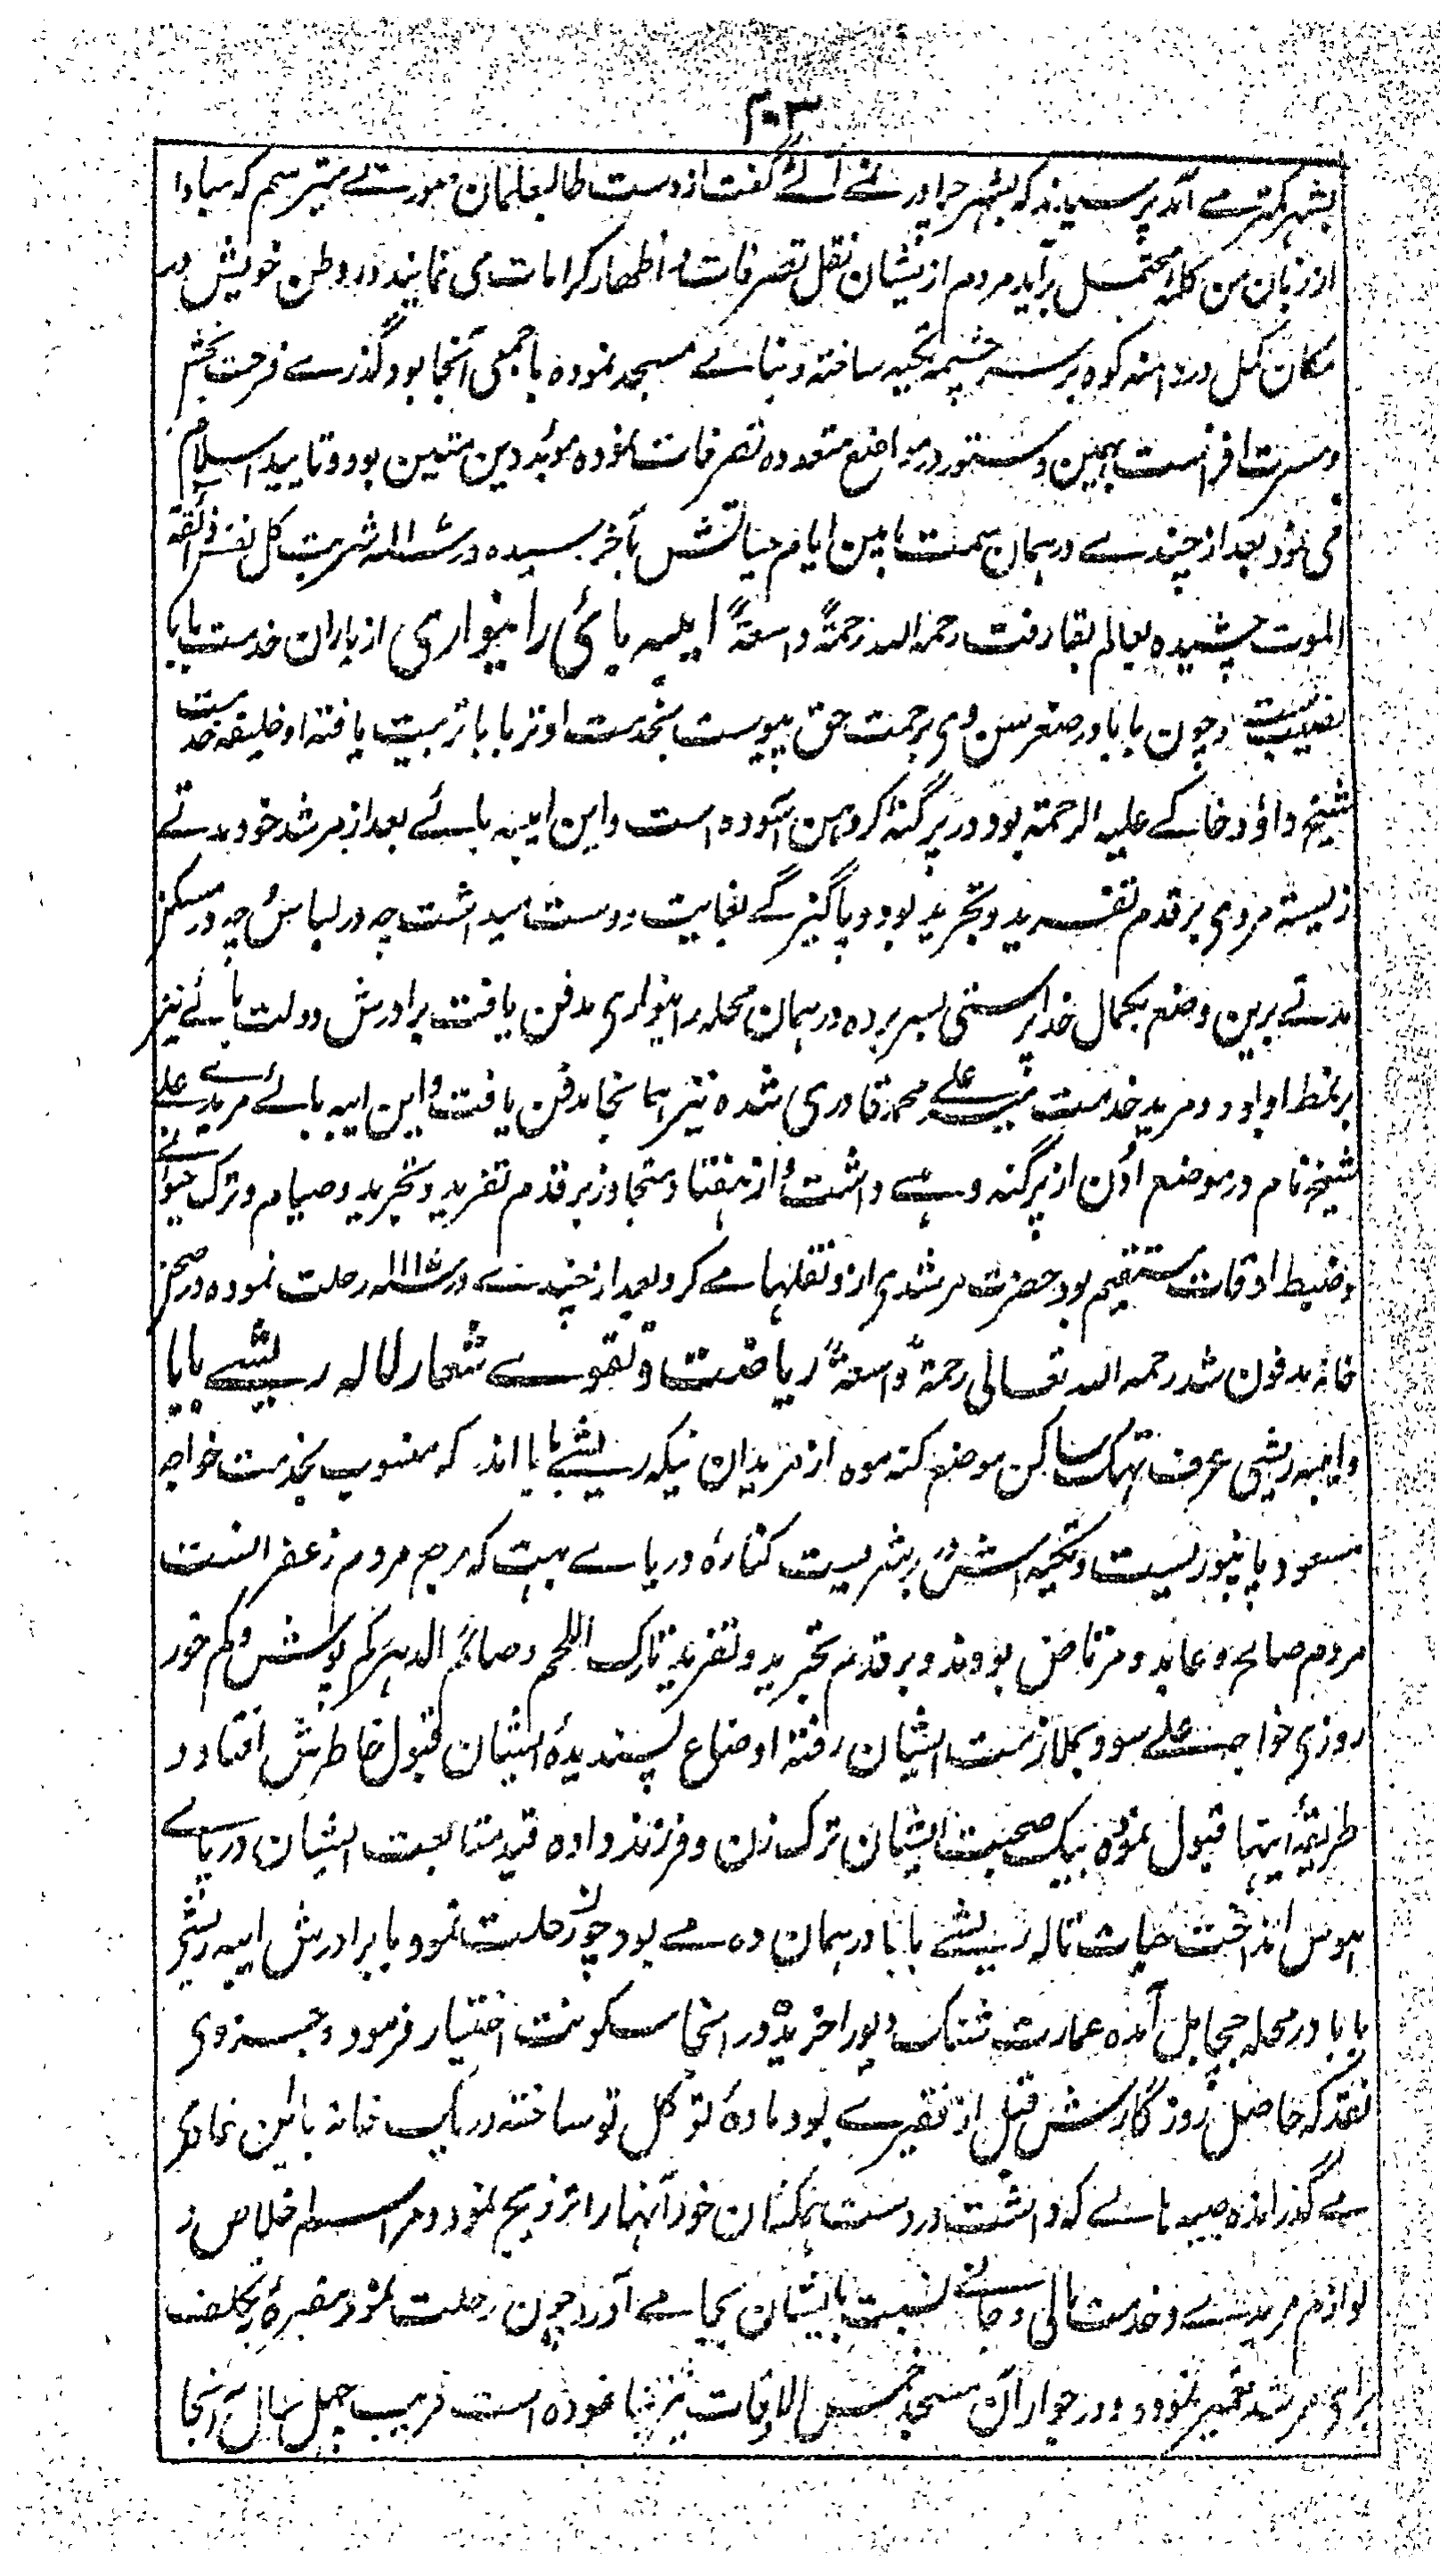 ۲۰۳
بشہر کمتر مے آمد پرسیدند کہ بشہر چرا در نمے آئے گفت از دست طالبعلمان صورتے میترسم کہ مبادا
از زبان من کلمہ محتمل برآید مردم از یشان نقل تصرفات و اظہار کرامات می نمایند در وطن خویش در
مکان کمل در دامنہ کوہ بر سر چشمہ تکیہ ساختہ و بنائے مسجد نمودہ با جمعی آنجا بود گذرے فرحت بخش
و مسرت افزاست بہمین دستور در مواضع متعددہ تصرفات نمودہ موئد دین متین بود و تایید اسلام
می نمود بعد از چندے در ہمان سمت بابین ایام حیاتش بآخر رسیدہ در شربت کل نفس ذائقۃ
الموت چشیدہ بعالم بقا رفت رحمہ اللہ رحمۃً واسعۃً ایبہ بائی رانیواری از یاران خدمت بابا
نصیب ست و چون بابا در صغر سن وی برحمت حق پیوست بخدمت اونز بابا تربیت یافتہ او خلیفہ خدمت
شیخ داؤد خاکے علیہ الرحمۃ بود در پرگنہ کروہن آسودہ است و این ایبہ بائے بعد از مرشد خود مدتے
زیستہ مردی بر قدم تفرید و تجرید بود و پاکیزگے بغایت دوست میداشت چہ در لباس چہ در مسکن
مدتے برین وضع بکمال خداپرستی بسر بردہ در ہمان محلہ رانیواری مدفن یافت برادرش دولت بائے نیز
بر نمط او بود و مرید خدمت میر علے محمد قادری شدہ نیز ہمانجا مدفن یافت و این ایبہ بائے مریدے علے
شیخ نام در موضع اون از پرگنہ وہے داشت و از ہفتاد متجاوز بر قدم تفرید و تجرید و صیام و ترک حیوانے
و ضبط اوقات مستقیم بود حضرت مرشدی ازو نقلہا مے کرد بعد از چندے در رحلت نمودہ در صحن
خانہ مدفون شد رحمہ اللہ تعالی رحمۃً واسعۃً ریاضت و تقوے شعار لالہ ریشے بابا
و ایبہ ریشی عرف ساکن موضع کتہ موہ از مریدان نیکہ ریشے بابا اند کہ منسوب بخدمت خواجہ
مسعود پانپوریست و تکیہ اش در بر شرسیت کنارہ دریاے بہت کہ مرجع مردم زعفرانست
مردم صالح و عابد و مرتاض بودند و بر قدم تجرید و تفرید تارک اللحم و صائم الدہر کم پوشش و کم خور
روزی خواجہ علے سود بملازمت ایشان رفتہ اوضاع پسندیدہ ایشان قبول خاطرش افتاد و
طریقہ اینہا قبول نمودہ بیک صحبت ایشان ترک زن و فرزند دادہ قید متابعت ایشان در پاے
ہوس انداخت حیات تا لالہ ریشے بابا در ہمان دہ مے بود چون رحلت نمود با برادرش ایبہ ریشی
بابا در محلہ آمدہ عمارت شنک و پورا خرید و در آنجا سکونت اختیار فرمود و جزوی
نقد کہ حاصل روزگارش قبل از فقیرے بود مادہ توکل تو ساختہ در یک خانہ باین نمادی
مے گذراندہ صبیہ ہائے کہ داشت در دست ہمکنان خود آنہا را تزویج نمود و مراسم اخلاص و
لوازم مریدے و خدمت مالی و جانے نسبت بایشان بجا مے آورد چون رحلت نمود مقبرہ پرتکلف
برای مرشد تعمیر نمود و در جوار آن مسجد خمس الاوقات نیز بنا نمودہ است قریب چہل سال آنجا